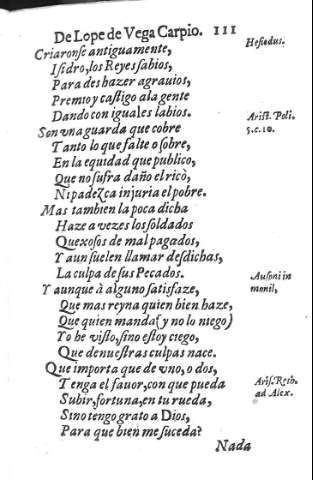 De Lope de Vega Carpio. 111
Criaronse antiguamente,
Hesiodus.
Isidro, los Reyes sabios,
Para deshazer agrauios,
Premio y castigo a la gente
Dando con iguales labios.
Arist. Poli.
5.c.10.
Son vna guarda que cobre
Tanto lo que falte o sobre,
En la equidad que publico,
Que no sufra daño el rico,
Ni padezca injuria el pobre.
Mas tambien la poca dicha
Haze a vezes los soldados
Quexosos de mal pagados,
Y aun suelen llamar desdichas,
La culpa de sus Pecados.
Ausoni in
monil,
Y aunque à alguno satisfaze,
Que mas reyna quien bien haze,
Que quien manda (y no lo niego)
Yo he visto, sino estoy ciego,
Que de nuestras culpas nace.
Que importa que de vno, o dos,
Tenga el fauor, con que pueda
Aris. Reth.
ad Alex.
Subir, fortuna, en tu rueda,
Sino tengo grato a Dios,
Para que bien me suceda?
Nada